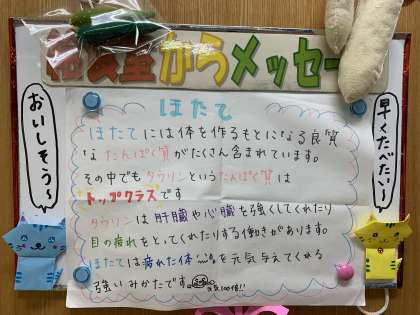 給食室からメッセー
おいしそう～
早くたべたい～
ほたて
ほたてには体を作るもとになる良質
なたんぱく質がたくさん含まれています。
その中でもタウリンというたんぱく質は
トップクラスです
タウリンは肝臓や心臓を強くしてくれたり
目の疲れをとってくれたりする働きがあります。
ほたては疲れた体に元気与えてくれる
強いみかたです
元気100倍!!